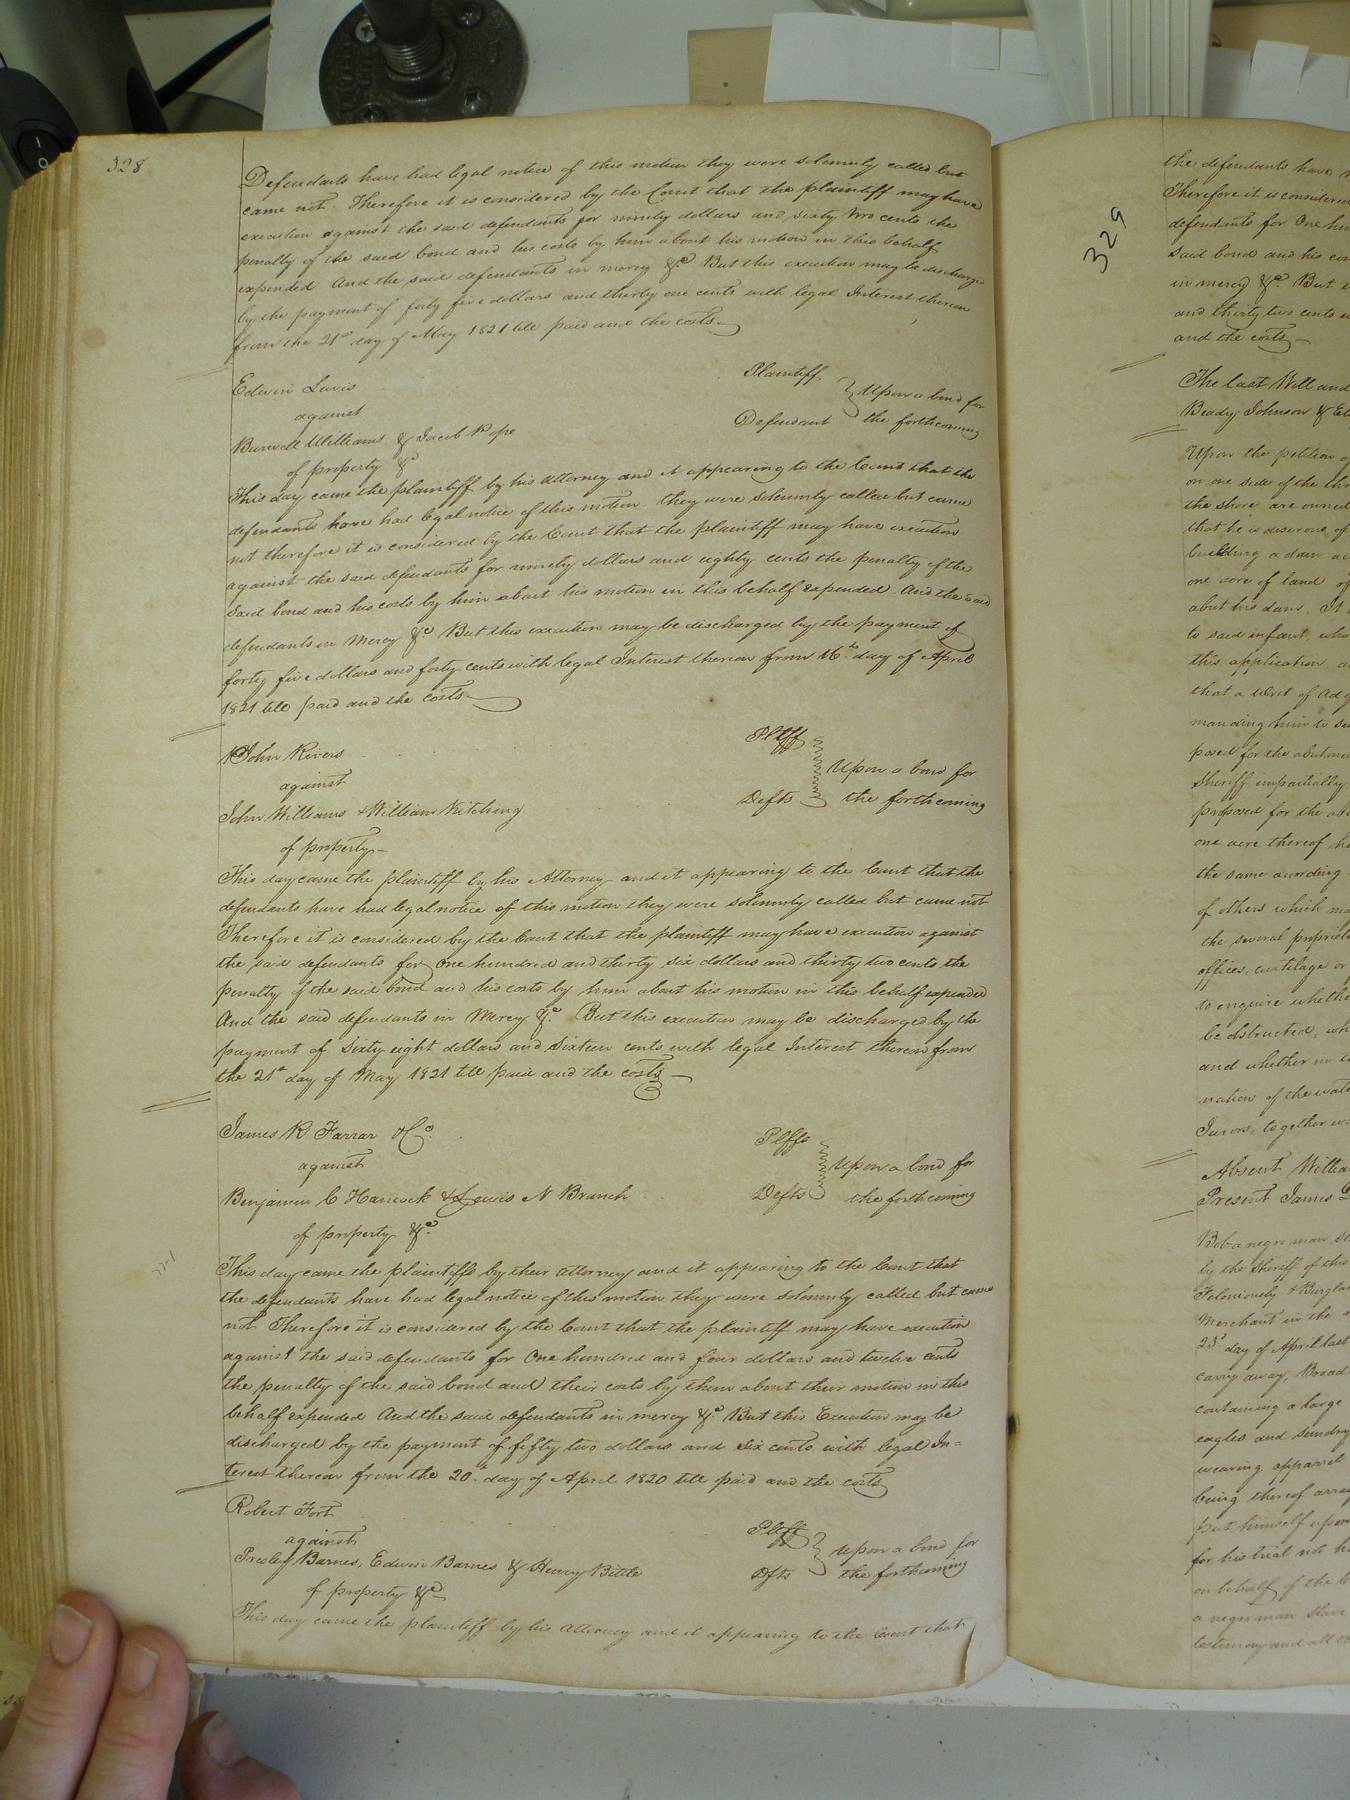 328
Defendants have had legal notice of this motion they were solemnly called but
came not. Therefore it is considered by the Court that the plaintiff may have
execution against the said defendants for ninety dollars and sixty two cents the
penalty of the said bond and his costs by him about his motion in this behalf
expended And the said defendants in mercy &c But this execution may be discharged
by the payment of forty five dollars and thirty one cents with legal Interest thereon
from the 21st day of May 1821 till paid and the costs
Edwin Lewis Plaintiff
against Upon a bond for
Burwell Williams & Jacob Pope Defendant the forthcoming
of property &c
This day came the plaintiff by his Attorney and it appearing to the Court that the
defendants have had legal notice of this motion they were solemnly called but came
not therefore it is considered by the Court that the plaintiff may have execution
against the said defendants for ninety dollars and eighty cents the penalty of the
said bond and his costs by him about his motion in this behalf expended And the said
defendants in Mercy &c But this execution may be discharged by the payment of
forty five dollars and forty cents with legal Interest thereon from 16th day of April
1821 till paid and the costs
John Rivers Pltff
against Upon a bond for
John Williams & William Kitching Defts the forthcoming
of property
This day came the plaintiff by his Attorney and it appearing to the Court that the
defendants have had legal notice of this motion they were solemnly called but came not
Therefore it is considered by the Court that the plaintiff may have execution against
the said defendants for One hundred and thirty six dollars and thirty two cents the
penalty of the said bond and his costs by him about his motion in this behalf expended
And the said defendants in Mercy &c. But this execution may be discharged by the
payment of Sixty eight dollars and Sixteen cents with legal Interest thereon from
the 21st day of May 1821 till paid and the costs
James R Farrar & Co. Plffs
against Upon a bond for
Benjamin C Hancock & Lewis N Branch Defts the forthcoming
of property &c.
This day came the plaintiffs by their Attorney and it appearing to the Court that
the defendants have had legal notice of this motion they were solemnly called but came
not Therefore it is considered by the Court that the plaintiff may have execution
against the said defendants for One hundred and four dollars and twelve cents
the penalty of the said bond and their costs by them about their motion in this
behalf expended And the said defendants in mercy &c. But this Execution may be
discharged by the payment of fifty two dollars and six cents with legal In=
terest thereon from the 20th day of April 1820 till paid and the costs
Robert Fort Pltff
against Upon a bond for
Presley Barnes, Edwin Barnes & Henry Bittle Dfts the forthcoming
of property &c
This day came the plaintiff by his Attorney and it appearing to the Court that
329
the defendants have
Therefore it is considered
defendants for One
said bond and his
in mercy &c. But
and thirty two cents
and the costs
The last Will and
Beady Johnson &
Upon the petition
on one side of the
the shore are owned
that he is desirous of
building a dam
one acre of land
abut his dam. It
to said infant, who
this application
that a Writ of Ad
manding him to
posed for the abutment
Sheriff impartially
proposed for the
one acre thereof
the same according
of others which
the several
offices, curtilage or
to enquire whether
be obstructed,
and whether in
nation of the
Jurors, together
Absent
Present James
Bob a negro man
by the sheriff of this
Feloniously & Burglar
Merchant in the
23d day of April last
carry away, Broad
containing a large
eagles and sundry
wearing apparel
being thereof
put himself upon
for his trial not
on behalf of the
a negro man slave
testimony and all